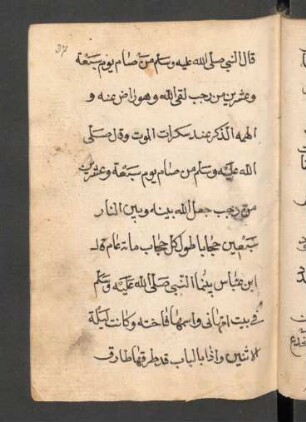 ٣٧
قال النبي صلى الله عليه وسلم من صام يوم سبعة
وعشرين من رجب لقى الله وهو راض عنه و
الهمه الذكر عند سكرات الموت وقال صلى
الله عليه وسلم من صام يوم سبعة وعشرين
من رجب جعل الله بينه وبين النار
سبعين حجابا طول كل حجاب ماة عام قال
ابن عباس بينما النبي صلى الله عليه وسلم
في بيت ام هانى واسمها فاخته وكانت ليلة
الاثنين واذا بالباب قد طرقها طارق